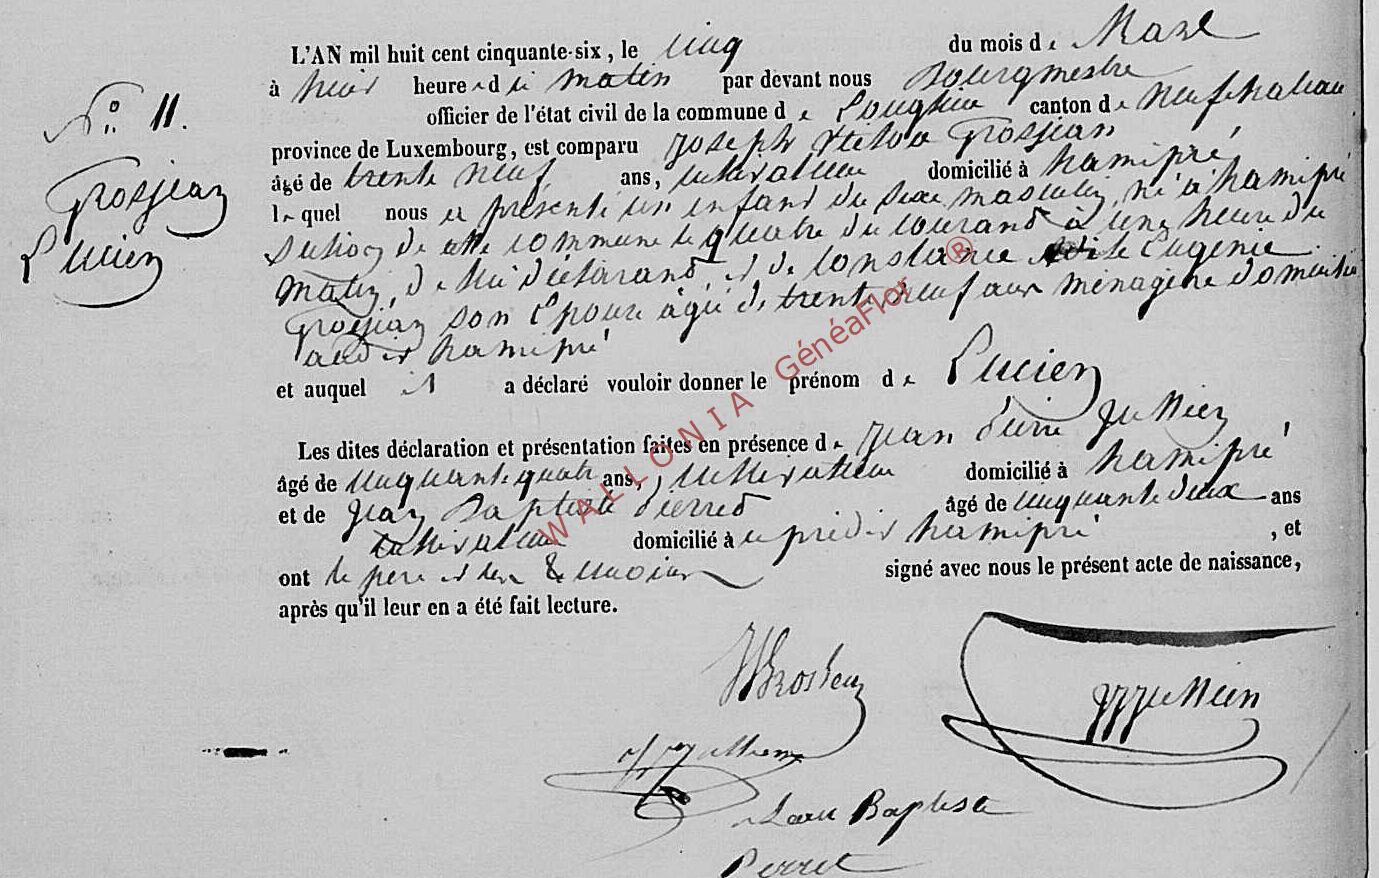 L'AN mil huit cent cinquante-six, le cinq du mois de Mars
à heures du matin par devant nous Bourgmestre
N° 11. officier de l'état civil de la commune de Longlier canton de Neufchateau
province de Luxembourg, est comparu Joseph Grosjean
Grosjean
âgé de trente neuf ans, cultivateur domicilié à hamipré
lequel nous a présenté un enfant du sexe masculin, né à hamipré
Lucien
section de cette commune le quatre du courant à une heure du
matin, de lui déclarant, et de Constance Eugénie
Grosjean son épouse âgée de trente neuf ans ménagère domiciliée
audit hamipré
et auquel il a déclaré vouloir donner le prénom de Lucien
Les dites déclaration et présentation faites en présence de Jean Pierre
âgé de cinquante quatre ans, cultivateur domicilié à hamipré
et de Jean Baptiste Pierret âgé de cinquante deux ans
cultivateur domicilié à hamipré , et
ont le père et les témoins signé avec nous le présent acte de naissance,
après qu'il leur en a été fait lecture.
Grosjean
Jean Baptiste
Perret
WALLONIA GénéaFlor ®